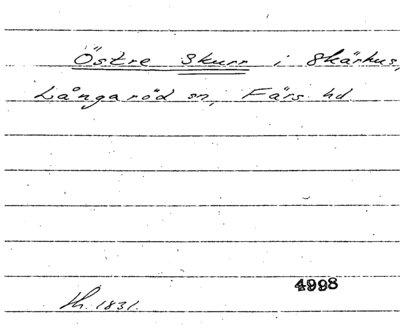 Östre Skurr i Skärhus,
Långaröd sn, Färs hd
4998
lh. 1831.